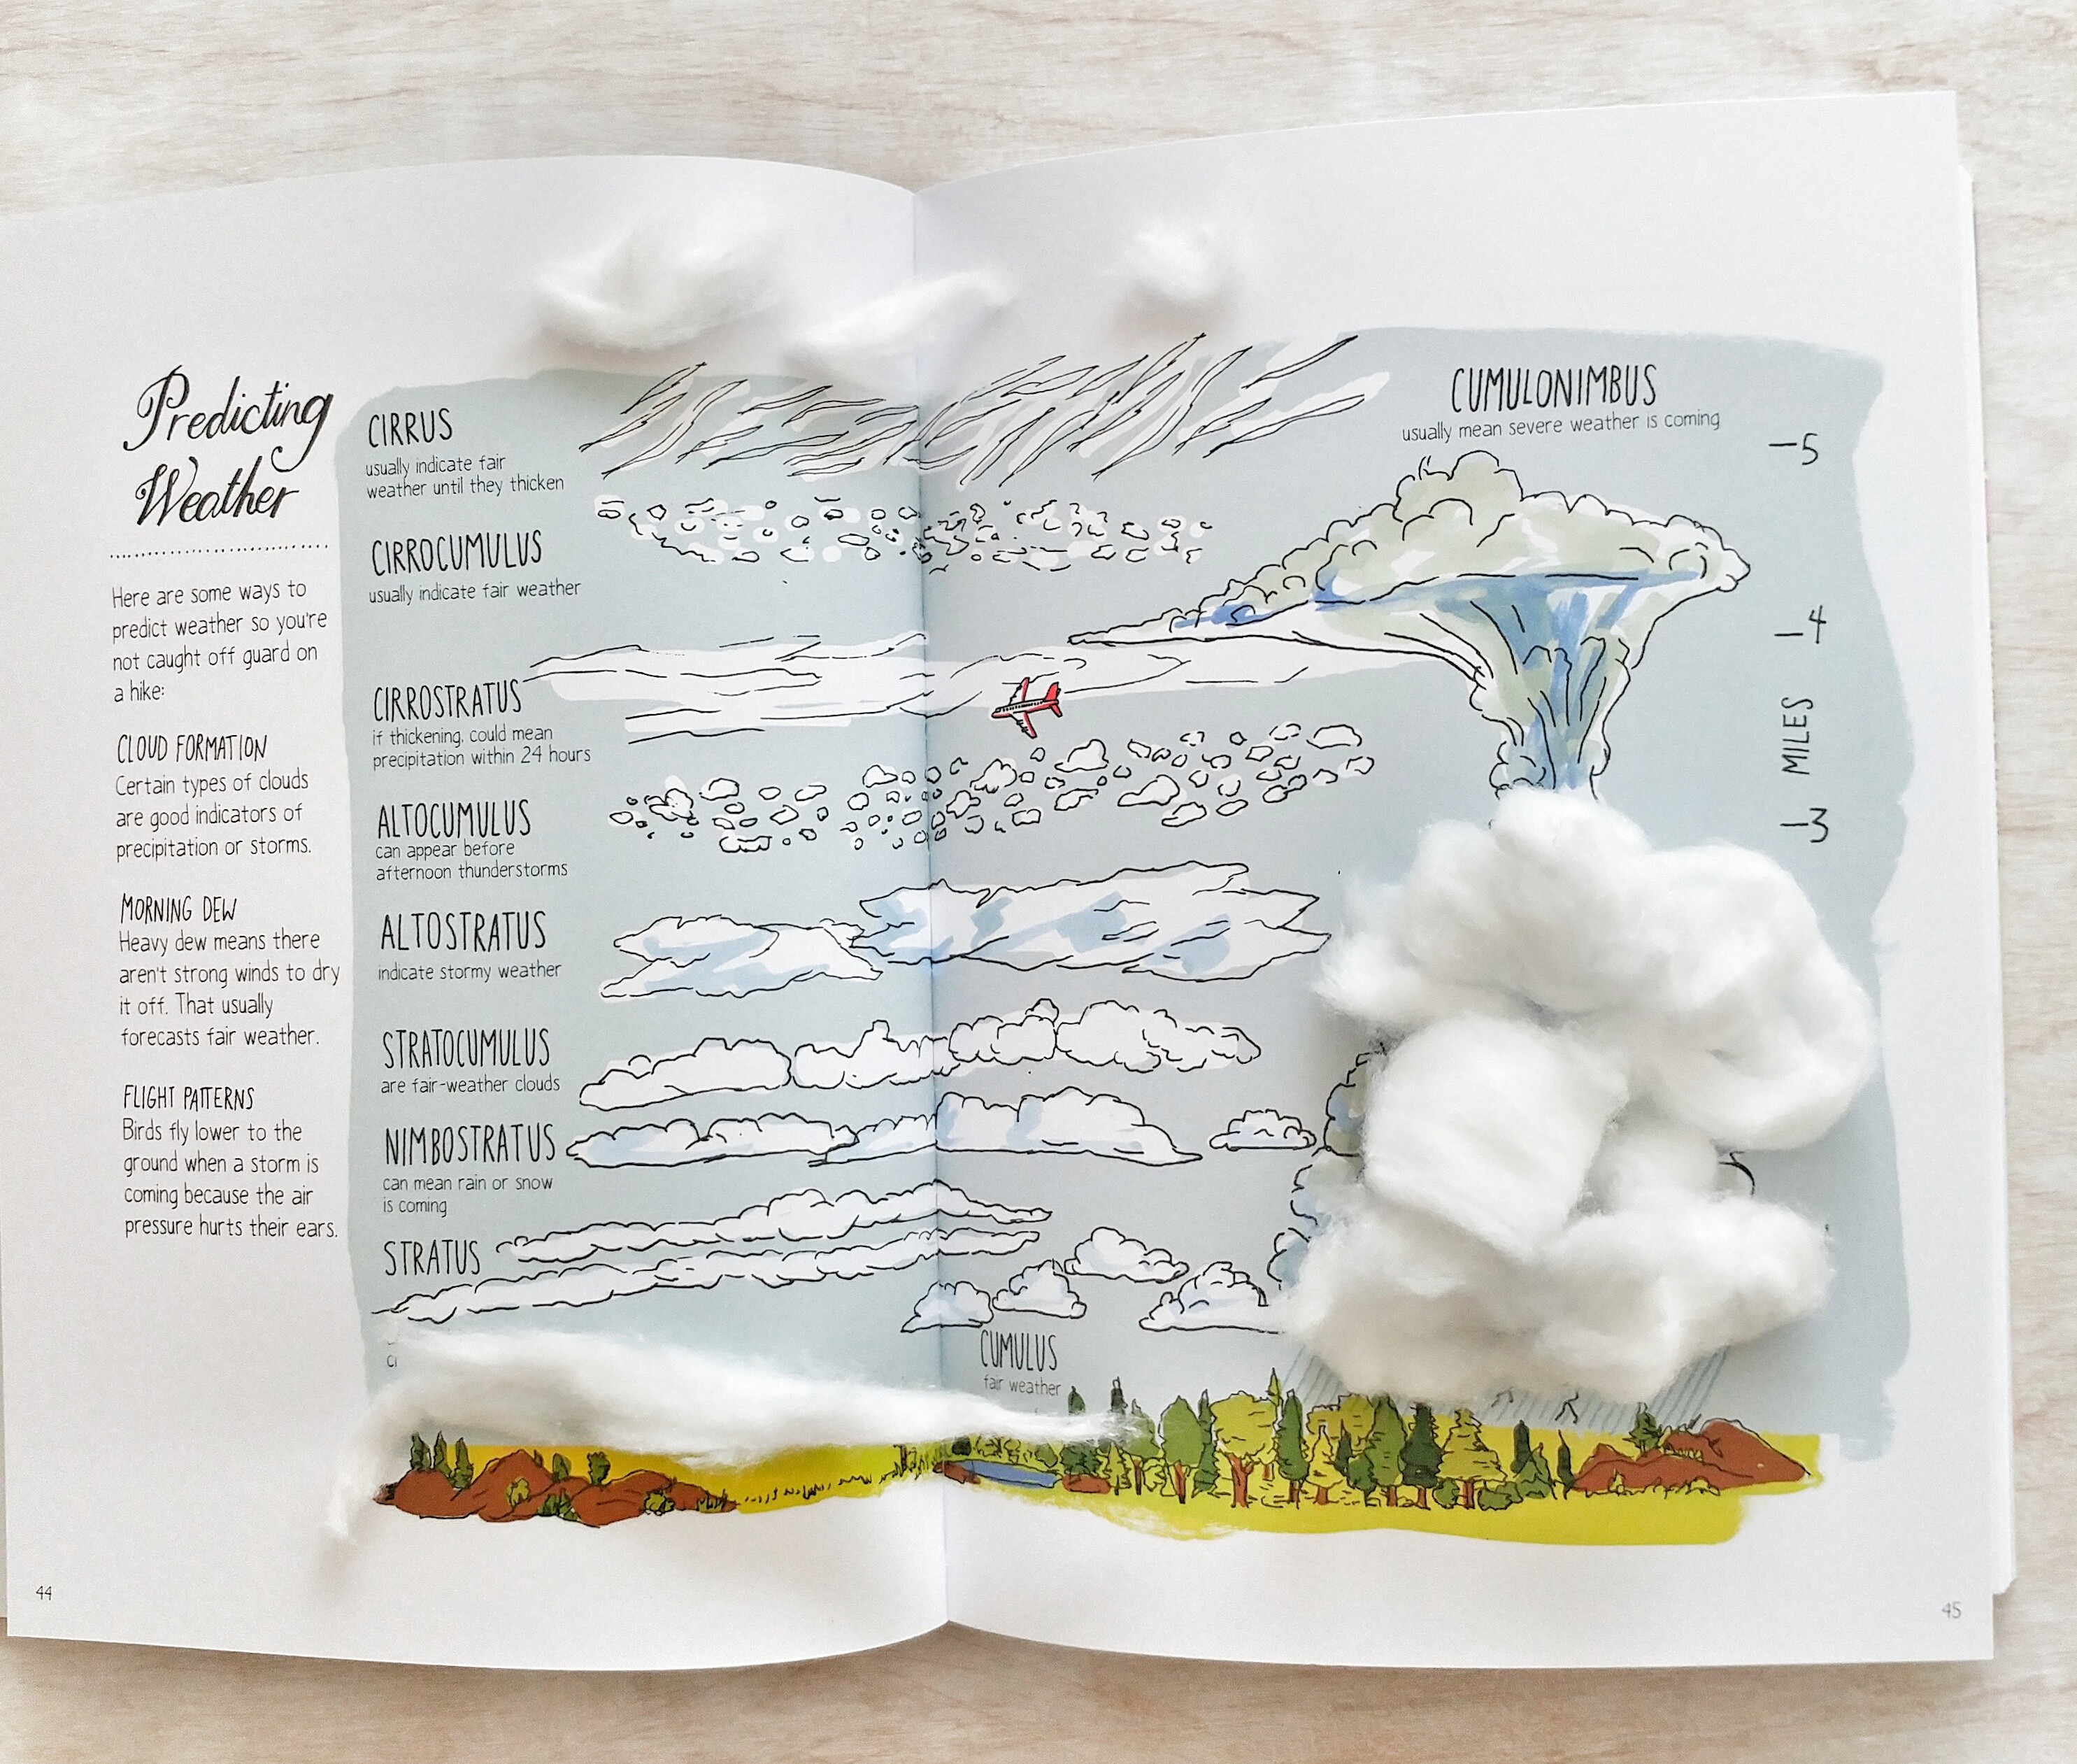 Predicting
Weather
Here are some ways to
predict weather so you're
not caught off guard on
a hike:
CLOUD FORMATION
Certain types of clouds
are good indicators of
precipitation or storms.
MORNING DEW
Heavy dew means there
aren't strong winds to dry
it off. That usually
forecasts fair weather.
FLIGHT PATTERNS
Birds fly lower to the
ground when a storm is
coming because the air
pressure hurts their ears.
44
CIRRUS
usually indicate fair
weather until they thicken
CIRROCUMULUS
usually indicate fair weather
CIRROSTRATUS
if thickening, could mean
precipitation within 24 hours
ALTOCUMULUS
can appear before
afternoon thunderstorms
ALTOSTRATUS
indicate stormy weather
STRATOCUMULUS
are fair-weather clouds
NIMBOSTRATUS
can mean rain or snow
is coming
STRATUS
CUMULUS
fair weather
CUMULONIMBUS
usually mean severe weather is coming
–5
–4
MILES
–3
45